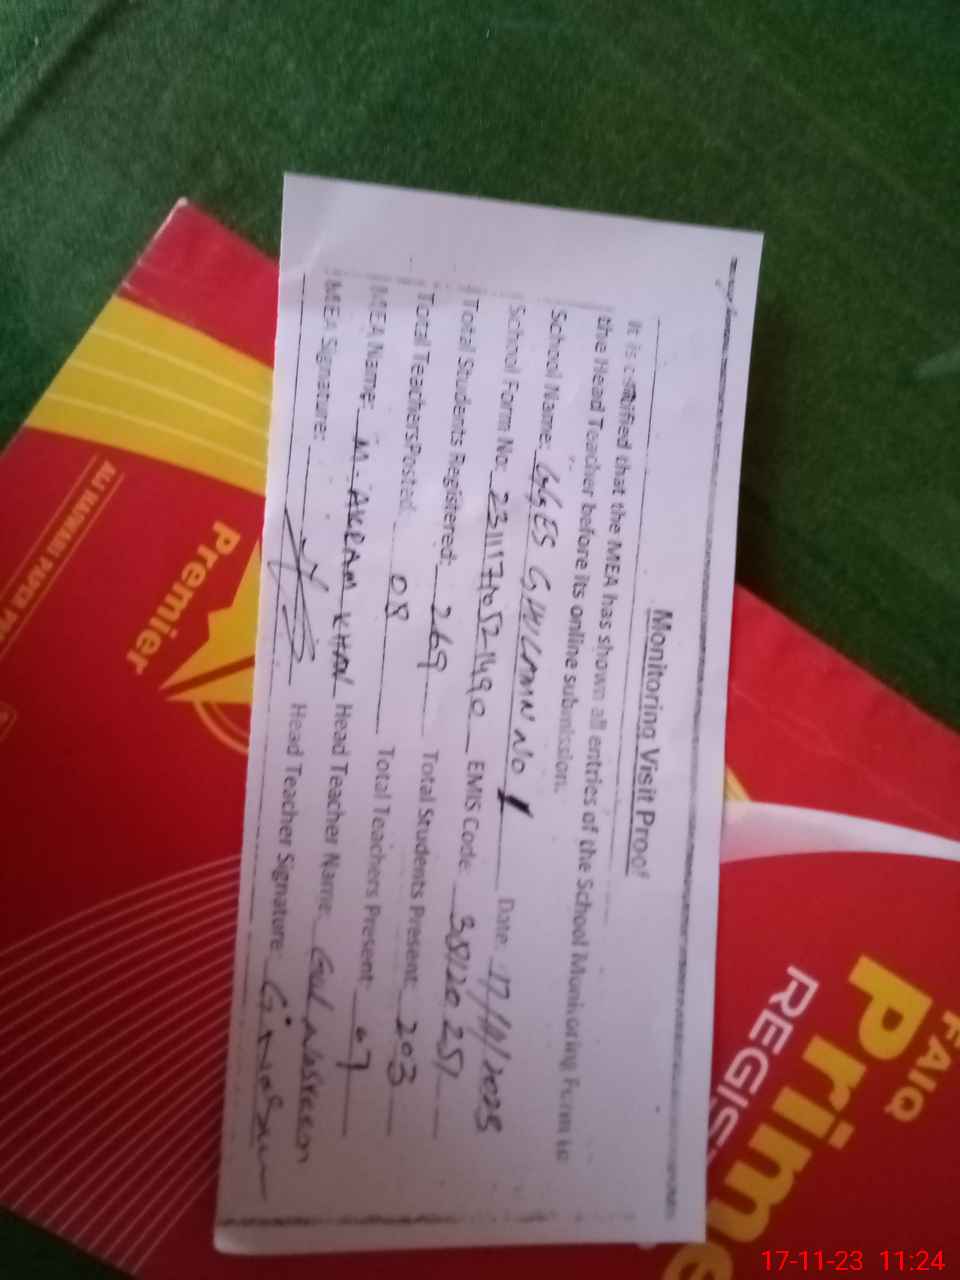 Monitoring Visit Proof
It is certified that the MEA has shown all entries of the School Monitoring Form to
the Head Teacher before its online submission.
School Name: GGES GHILMAN NO 1 Date: 17/11/2023
School Form No: EMIS Code: 38120251
Total Students Registered: 269 Total Students Present: 203
Total Teachers Posted: 08 Total Teachers Present: 07
MEA Name: M. AKRAM KHAN Head Teacher Name: Gul Nasreen
MEA Signature: Head Teacher Signature:
Premier
FAIQ
Prime
REGIS
17-11-23 11:24